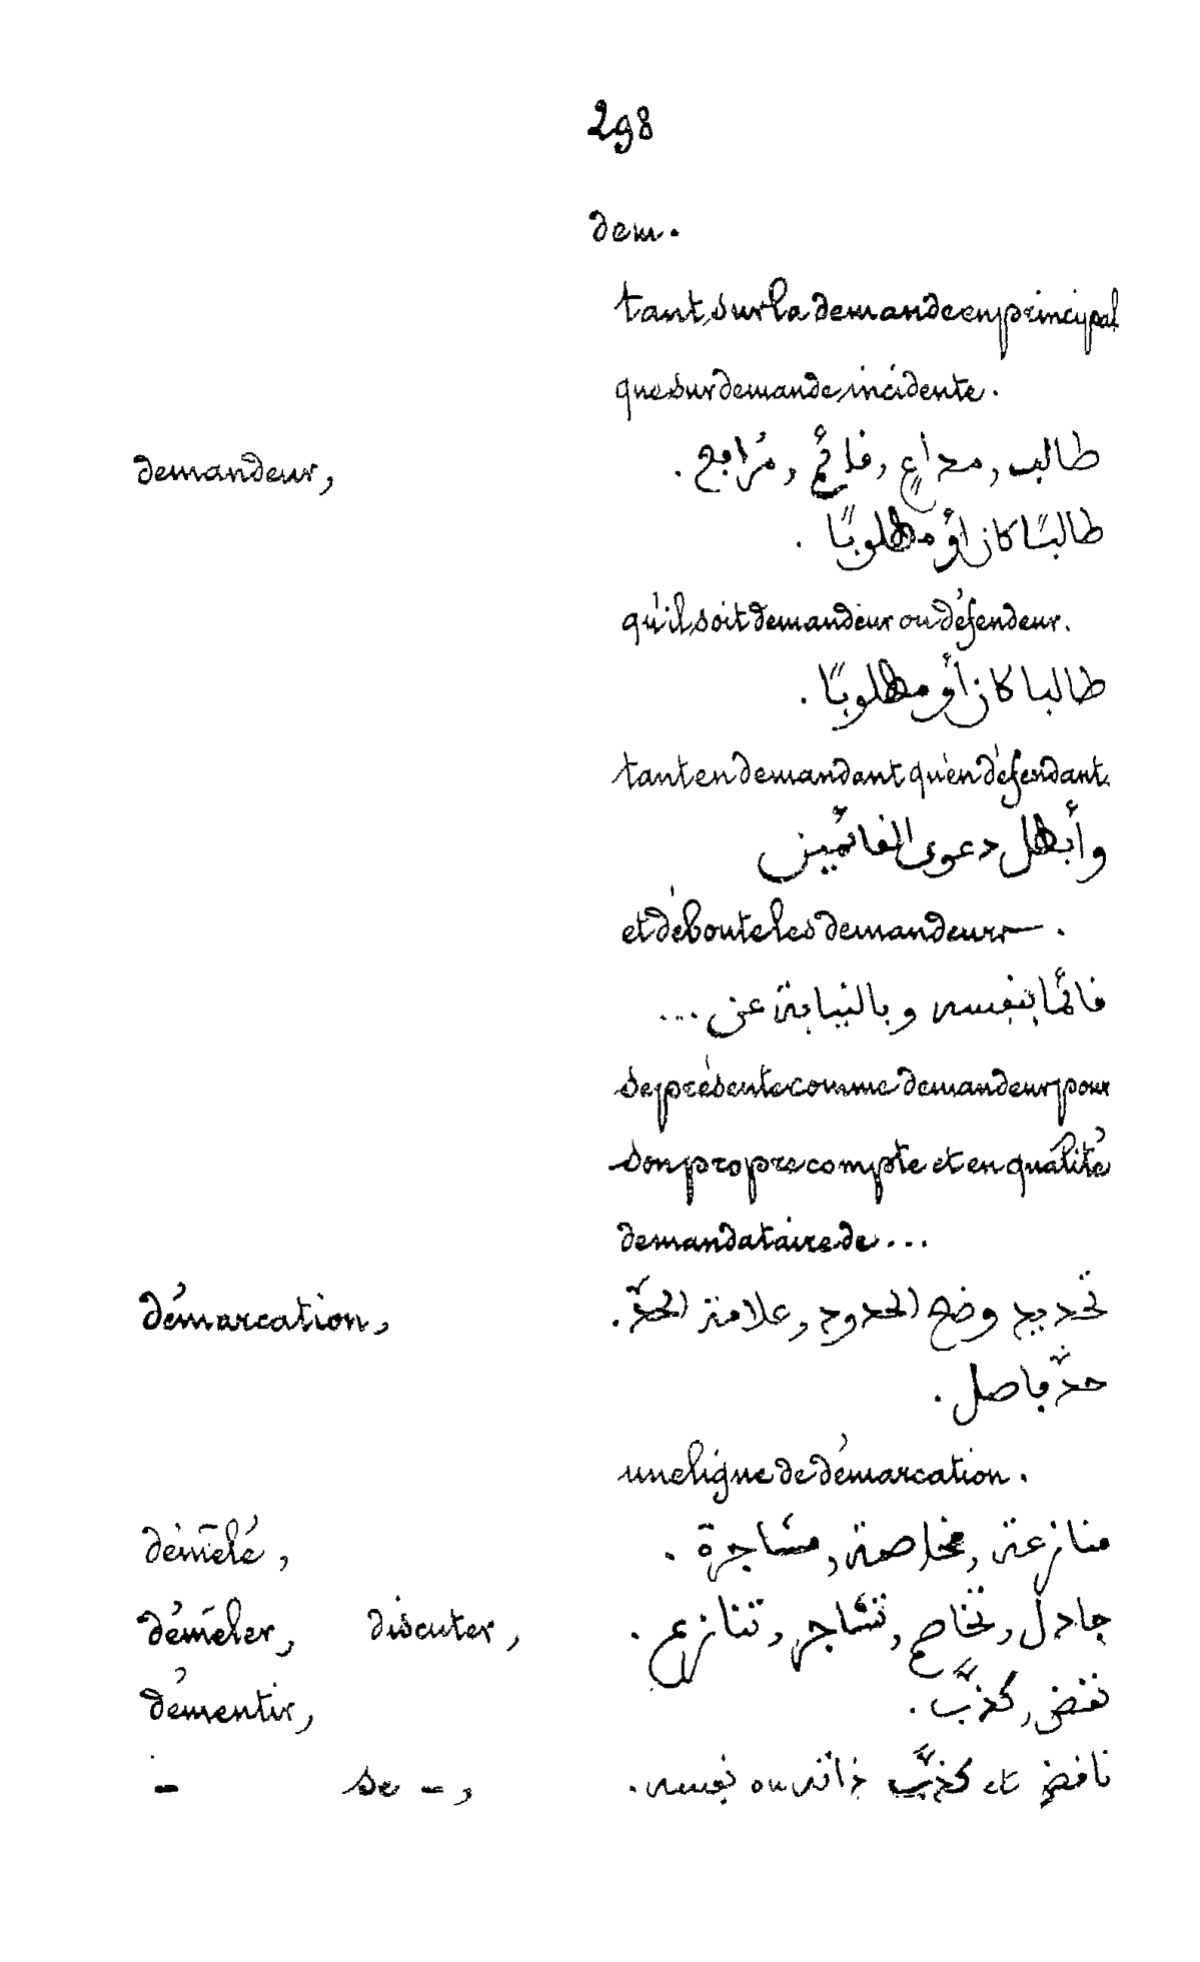 298
dem.
tant sur la demande en principal
que sur demande incidente.
demandeur, طالب, مداعٍ, قائم, مُرافع.
طالبًا كان أو مطلوبًا.
qu'il soit demandeur ou défendeur.
طالبا كان أو مطلوبًا.
tant en demandant qu'en défendant.
وأبطل دعوى القائمين
et déboute les demandeurs.
قائما بنفسه وبالنيابة عن ...
se présente comme demandeur pour
son propre compte et en qualité
de mandataire de ...
démarcation, تحديد وضع الحدود, علامة الحدّ.
حدّ فاصل.
une ligne de démarcation.
démêlé, منازعة, مخاصمة, مشاجرة.
démêler, discuter, جادل, تخاصم, تشاجر, تنازع.
démentir, نقض, كذّب.
- se -, ناقض et كذّب ذاته ou نفسه.